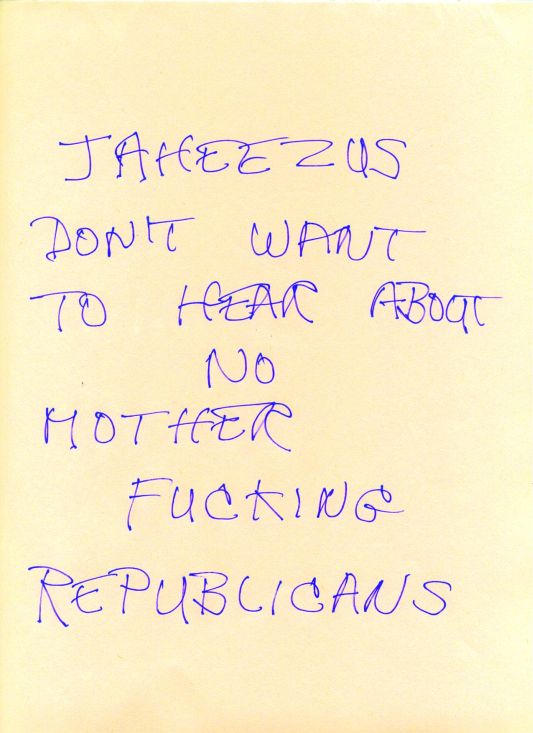 JAHEEZUS
DON'T WANT
TO HEAR ABOUT
NO
MOTHER
FUCKING
REPUBLICANS